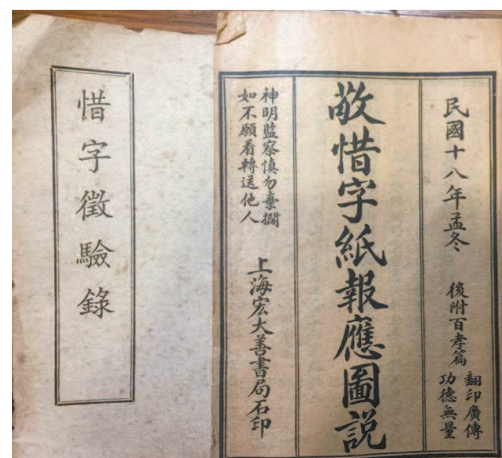 民國十八年孟冬
後附百孝篇
翻印廣傳
功德無量
敬惜字紙報應圖説
神明監察慎勿棄擱
如不願看轉送他人
上海宏大善書局石印
惜字徵驗錄